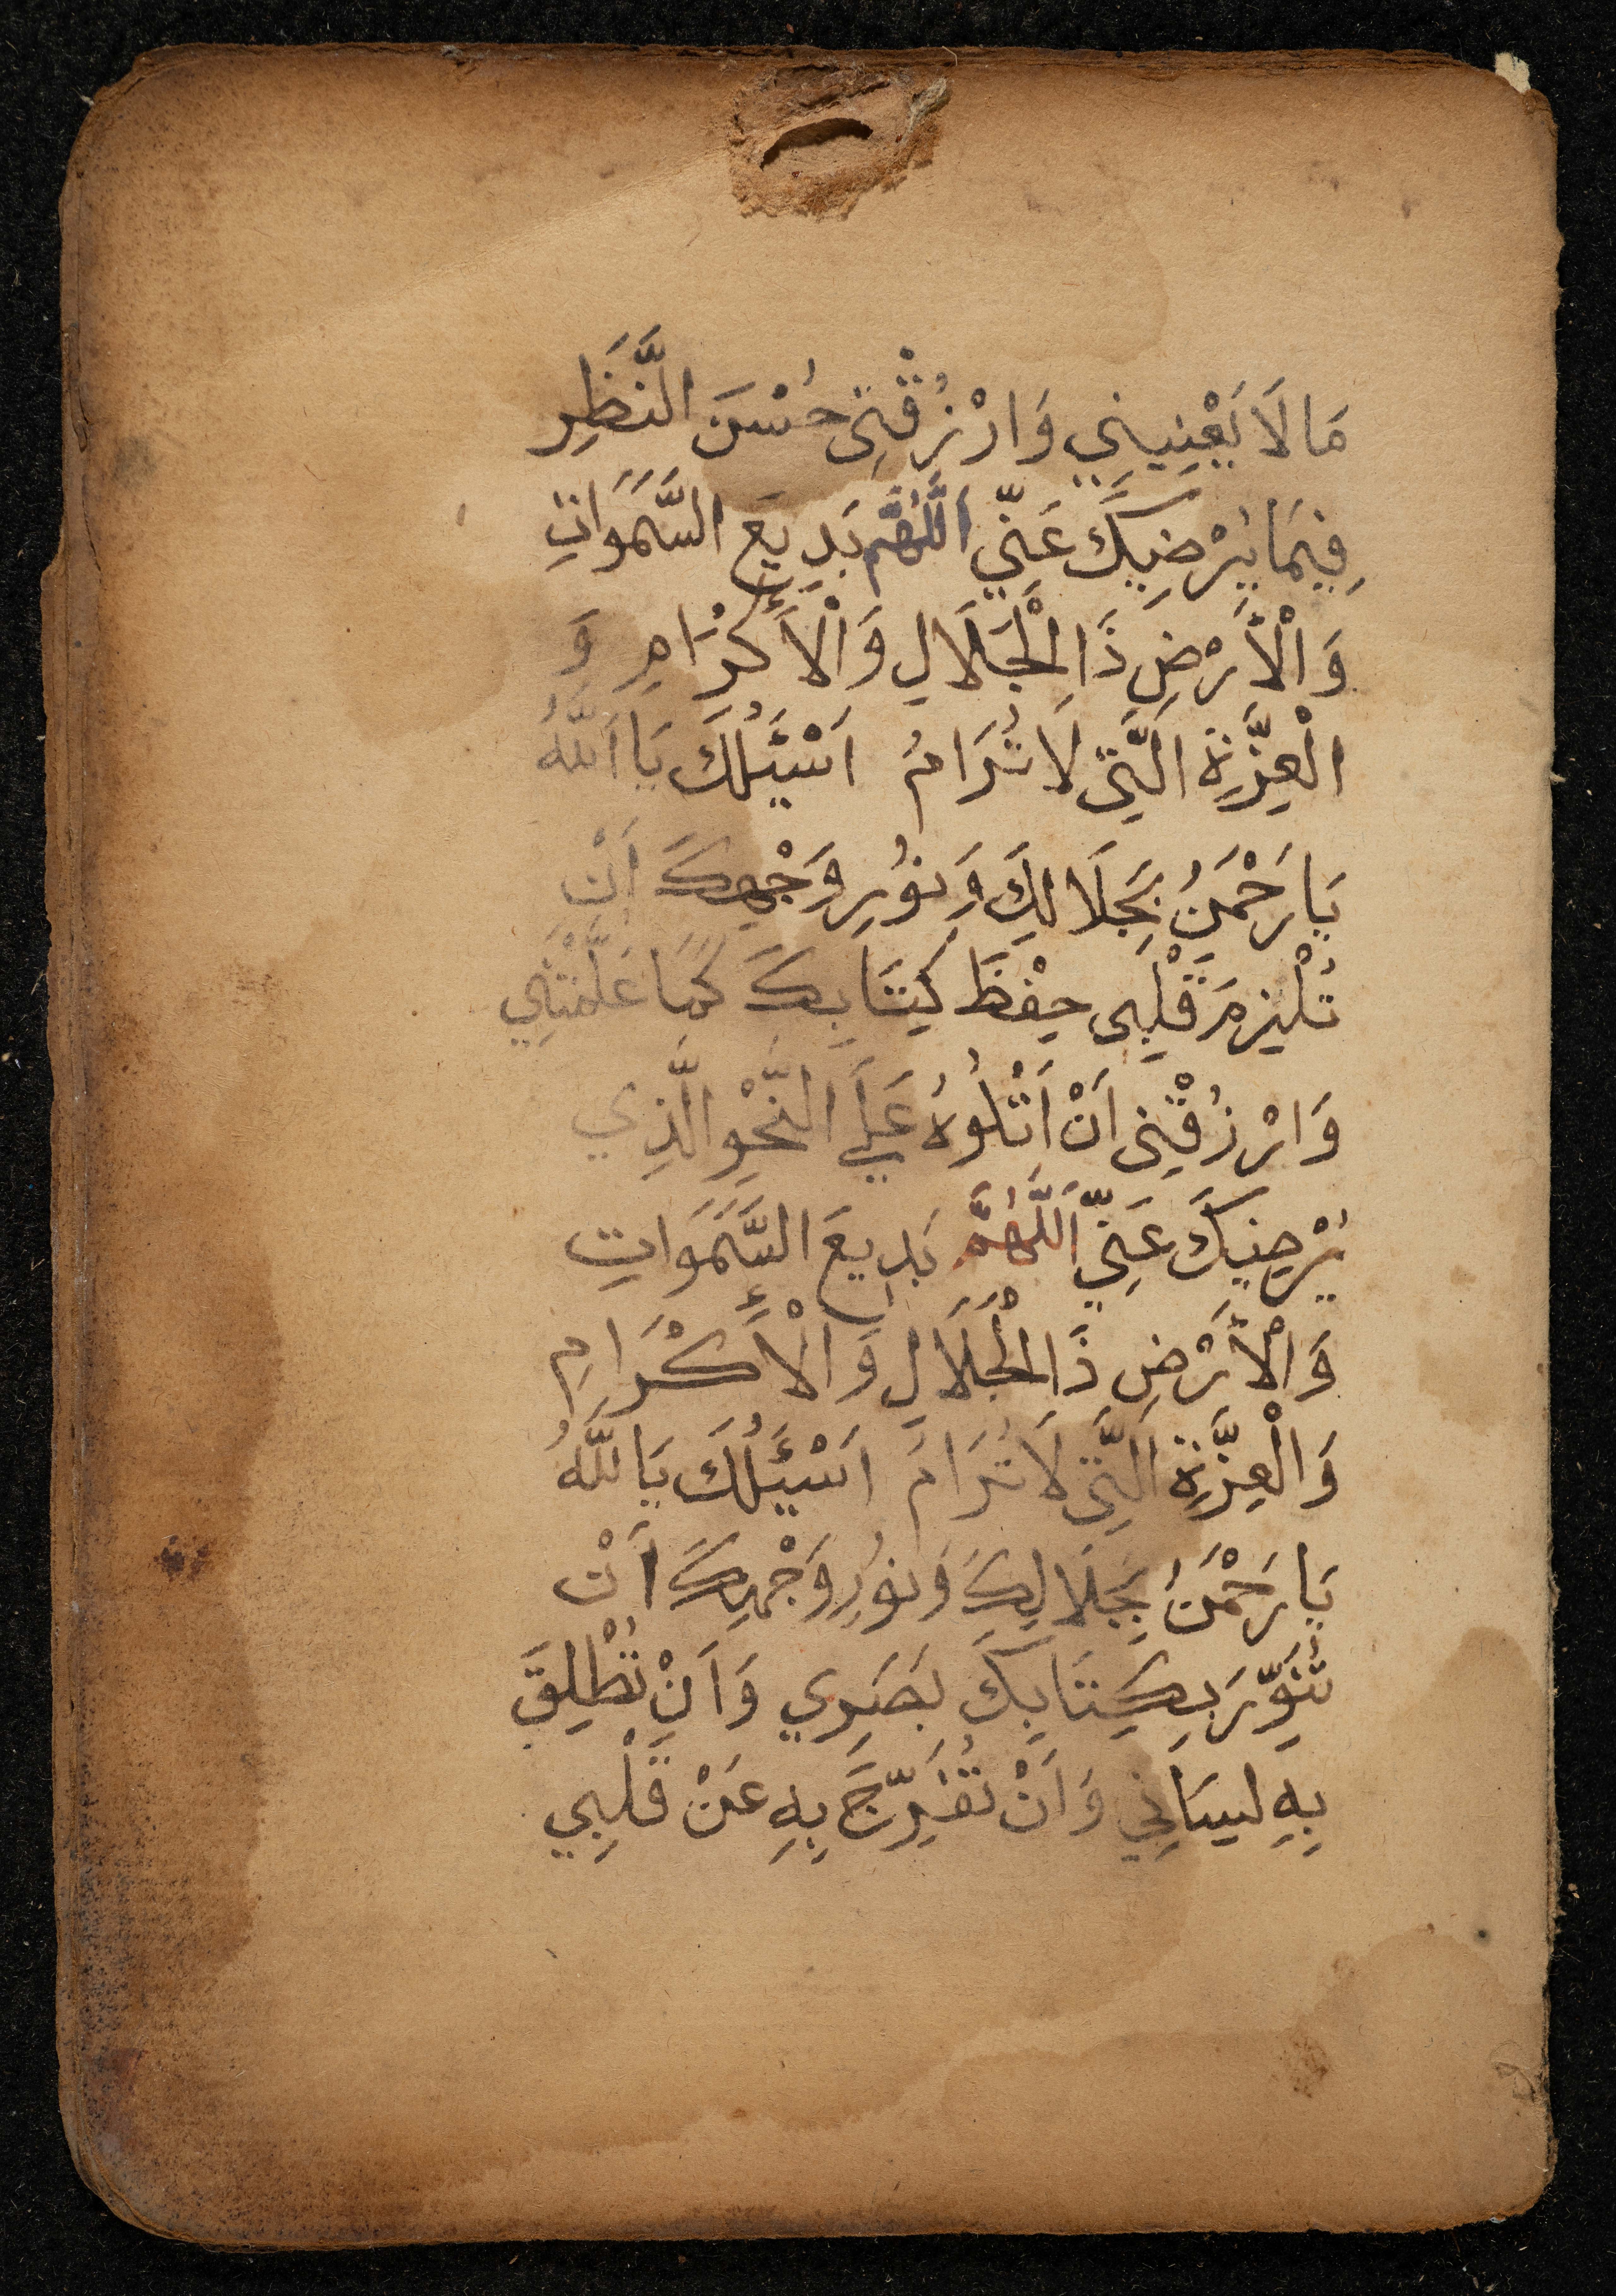 مَا لَا يَعْنِينِي وَارْزُقْنِى حُسْنَ النَّظَرِ
فِيمَا يُرْضِيكَ عَنِّي اَللَّهُمَّ بَدِيعَ السَّمَوَاتِ
وَالْأَرْضِ ذَا الْجَلَالِ وَالْأَكْرَامِ وَ
الْعِزَّةِ الَّتِى لَا تُرَامُ اَسْئَلُكَ يَا اَللَّهُ
يَا رَحْمَنُ بِجَلَالِكَ وَنُورِ وَجْهِكَ اَنْ
تُلْزِمَ قَلْبِى حِفْظَ كِتَابِكَ كَمَا عَلَّمْتَنِي
وَارْزُقْنِى اَنْ اَتْلُوهُ عَلَى النَّحْوِ الَّذِي
يُرْضِيكَ عَنِّي اَللَّهُمَّ بَدِيعَ السَّمَوَاتِ
وَالْأَرْضِ ذَا الْجَلَالِ وَالْأَكْرَامِ
وَالْعِزَّةِ الَّتِى لَا تُرَامَ اَسْئَلُكَ يَا للَّهُ
يَا رَحْمَنُ بِجَلَالِكَ وَنُورِ وَجْهِكَ اَنْ
تُنَوِّرَ بِكِتَابِكَ بَصَرِي وَاَنْ تُطْلِقَ
بِهِ لِسَانِي وَاَنْ تُفَرِّجَ بِهِ عَنْ قَلْبِي